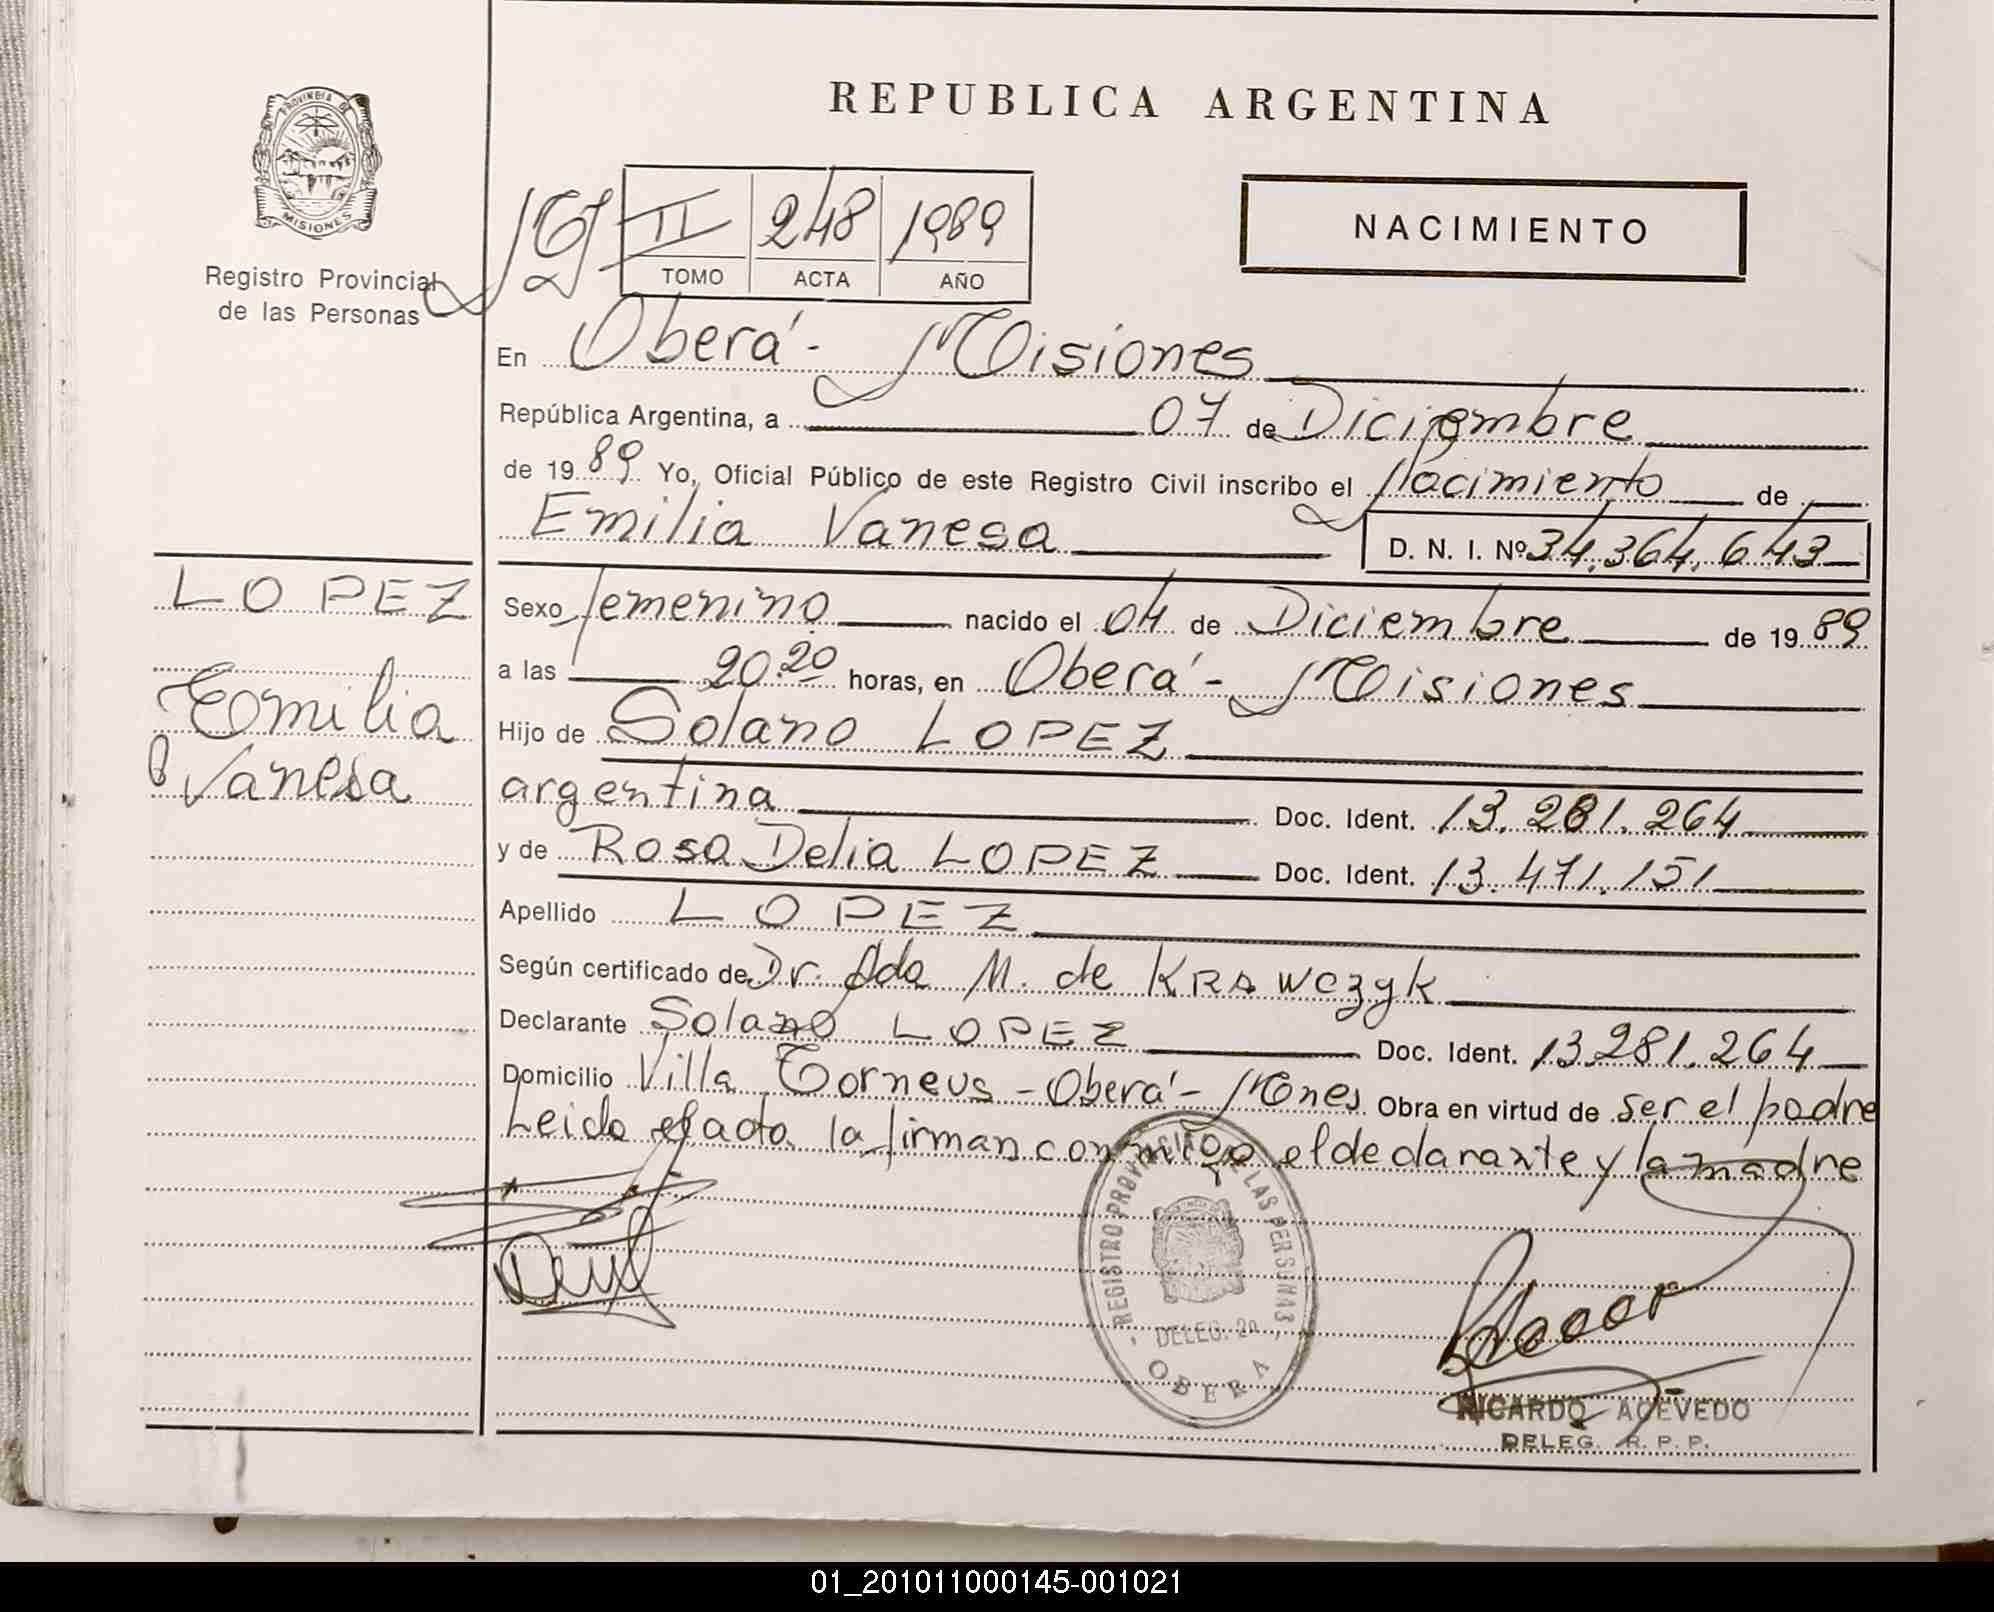 REPUBLICA ARGENTINA
PROVINCIA DE
MISIONES
Registro Provincial
de las Personas
II 248 1989
TOMO ACTA AÑO
NACIMIENTO
En Oberá - Misiones
República Argentina, a 07 de Diciembre
de 1989 Yo, Oficial Público de este Registro Civil inscribo el Nacimiento de
Emilia Vanesa D. N. I. Nº 34.364.643
LOPEZ
Emilia
Vanesa
Sexo femenino nacido el 04 de Diciembre de 1989
a las 20.20 horas, en Oberá - Misiones
Hijo de Solano LOPEZ
argentina Doc. Ident. 13.281.264
y de Rosa Delia LOPEZ Doc. Ident. 13.471.151
Apellido LOPEZ
Según certificado de Dr. Ada M. de KRAWCZYK
Declarante Solano LOPEZ Doc. Ident. 13.281.264
Domicilio Villa Torneus - Oberá - Mones Obra en virtud de ser el padre
Leido el acta la firman conmigo el declarante y la madre
REGISTRO PROVINCIAL DE LAS PERSONAS
DELEG. 2a
OBERA
RICARDO ACEVEDO
DELEG. R. P. P.
01_201011000145-001021